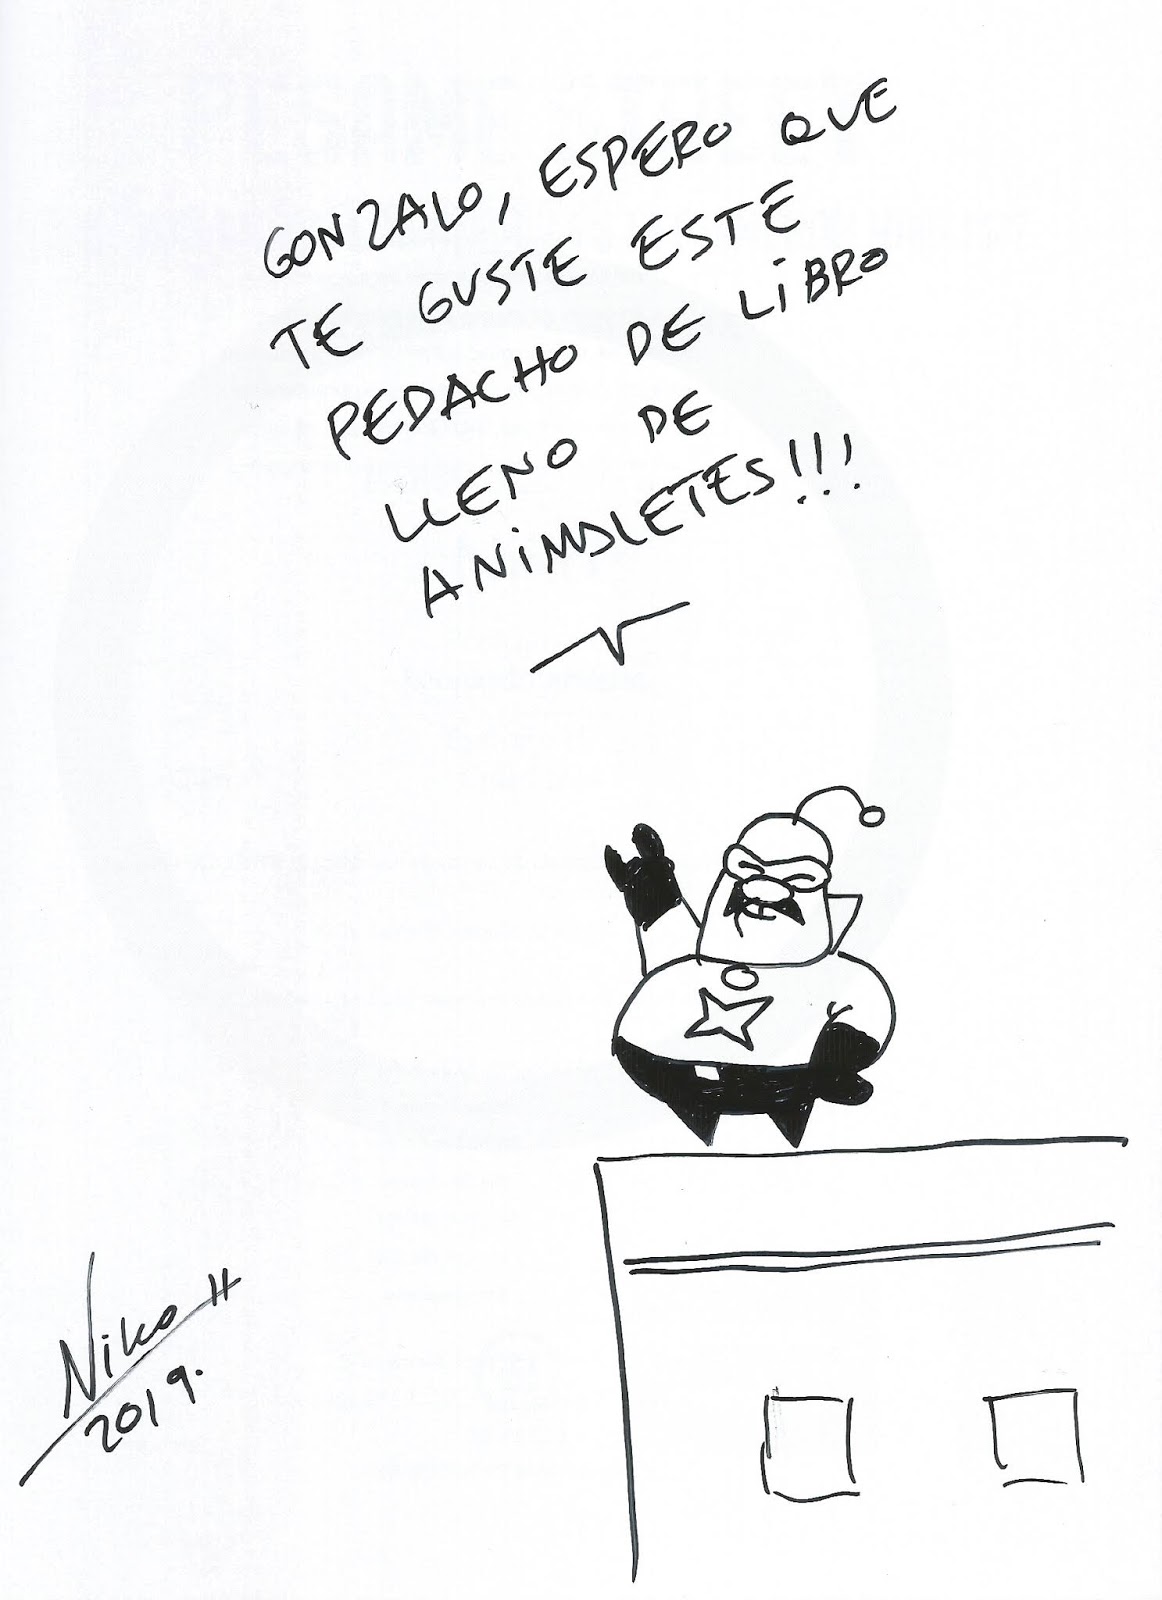 GONZALO, ESPERO QUE
TE GUSTE ESTE
PEDACHO DE LIBRO
LLENO DE
ANIMALETES!!!
Niko H
2019.